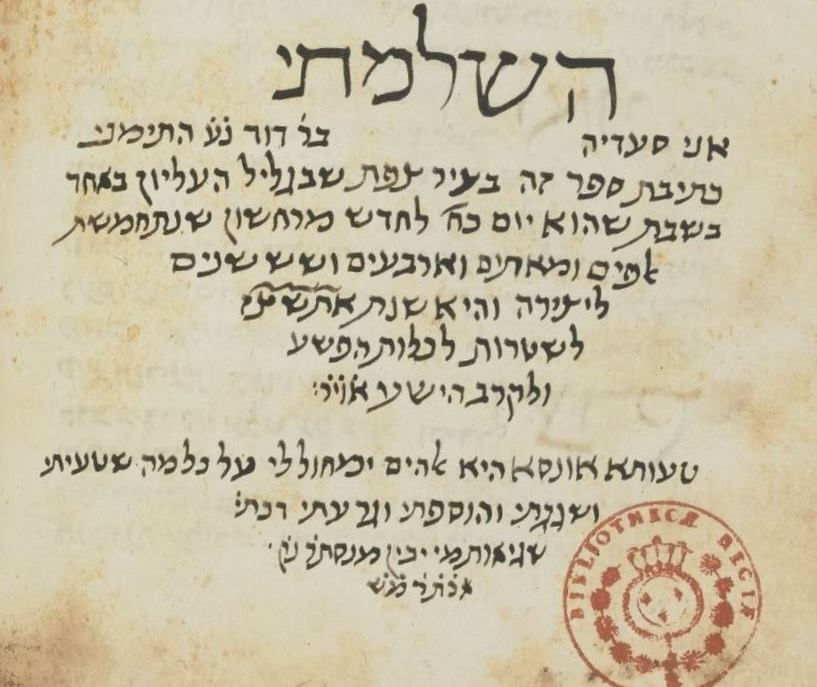 השלמתי
אני סעדיה בר דוד נע התימני
כתיבת ספר זה בעיר צפת שבגליל העליון באחד
בשבת שהוא יום כח לחדש מרחשון שנת חמשת
אלפים ומאתים וארבעים ושש שנים
ליצירה והיא שנת
לשטרות לכלות הפשע
ולקרב הישע
טעותא אונסא היא אהים ימחול לי על כל מה שטעיתי
ושגגתי והוספתי וגרעתי דכתי
שגיאות מי יבין מנסתר נק
BIBLIOTHECÆ REGIÆ